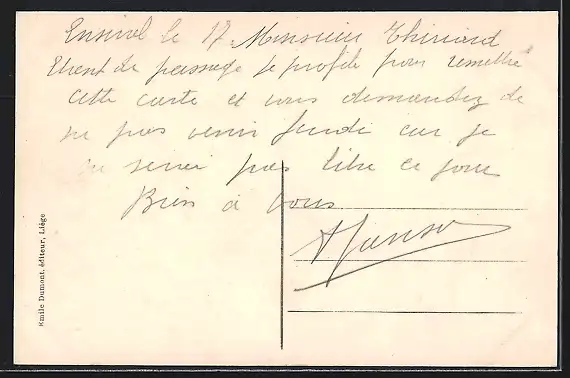 Ensival le 17. Monsieur Thiriard
Etant de passage je profite pour remettre
cette carte et vous demandez de
ne pas venir Jeudi car je
ne serai pas libre ce jour
Bien à vous
Emile Dumont, éditeur, Liège